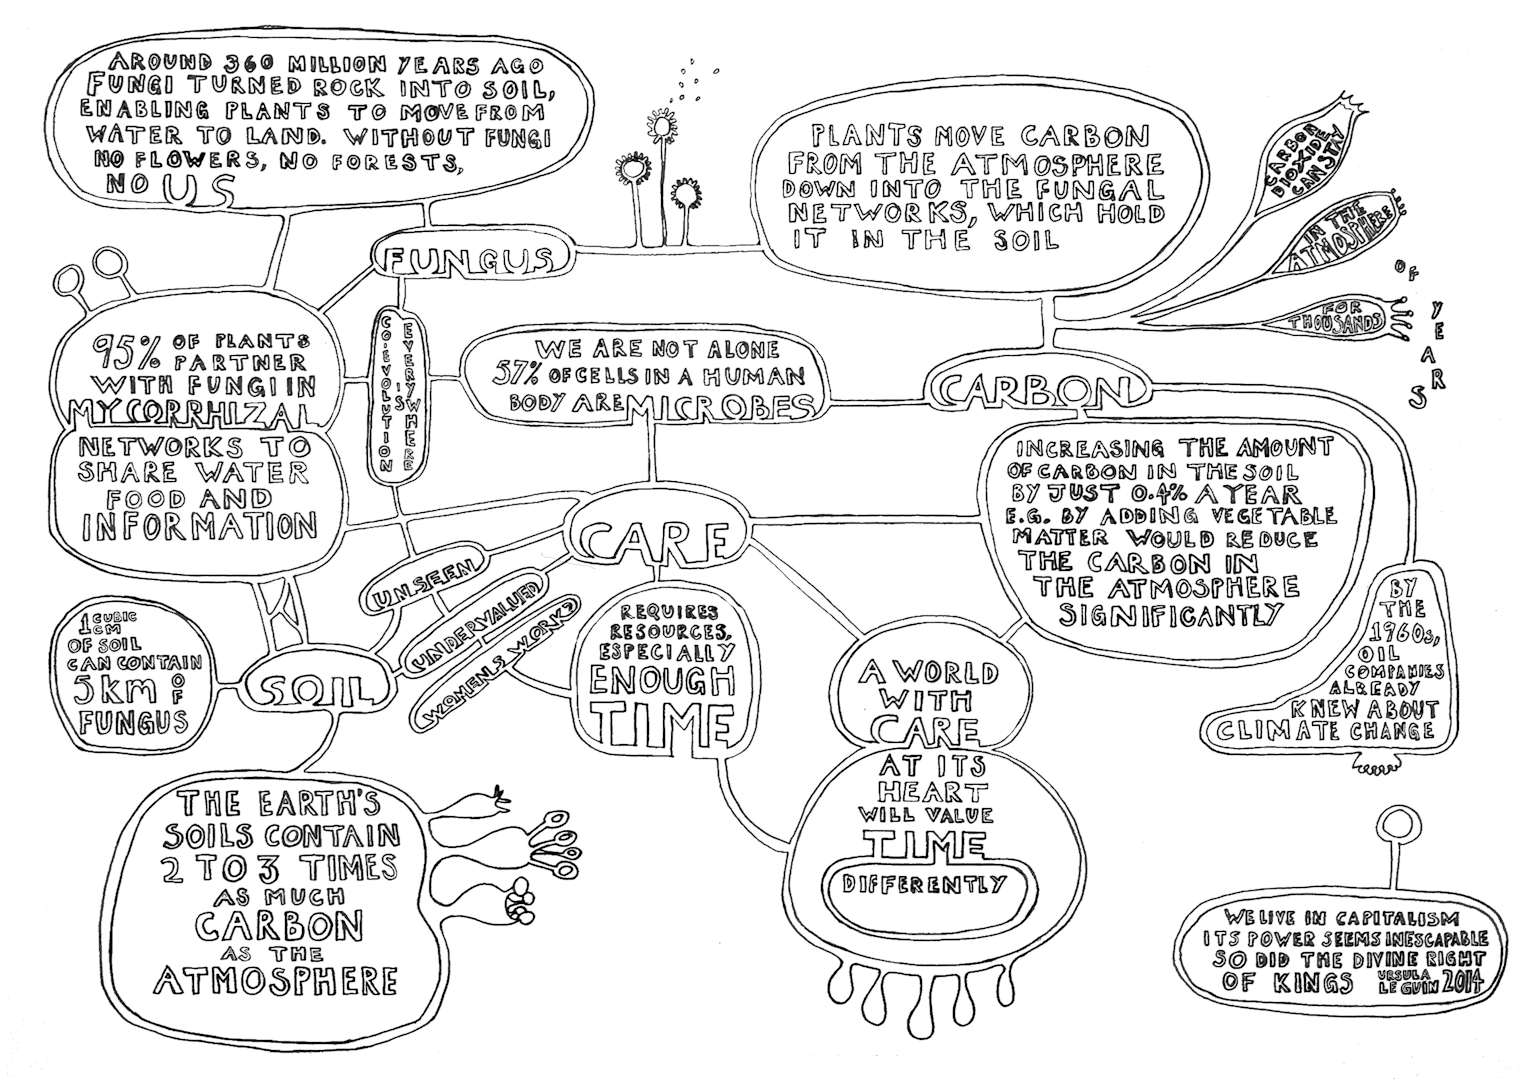 AROUND 360 MILLION YEARS AGO
FUNGI TURNED ROCK INTO SOIL,
ENABLING PLANTS TO MOVE FROM
WATER TO LAND. WITHOUT FUNGI
NO FLOWERS, NO FORESTS,
NO US
FUNGUS
PLANTS MOVE CARBON
FROM THE ATMOSPHERE
DOWN INTO THE FUNGAL
NETWORKS, WHICH HOLD
IT IN THE SOIL
CARBON
DIOXIDE
CAN STAY
IN THE
ATMOSPHERE
FOR
THOUSANDS
OF
YEARS
95% OF PLANTS
PARTNER
WITH FUNGI IN
MYCORRHIZAL
NETWORKS TO
SHARE WATER
FOOD AND
INFORMATION
CO-EVOLUTION
'S
EVERYWHERE
WE ARE NOT ALONE
57% OF CELLS IN A HUMAN
BODY ARE MICROBES
CARBON
INCREASING THE AMOUNT
OF CARBON IN THE SOIL
BY JUST 0.4% A YEAR
E.G. BY ADDING VEGETABLE
MATTER WOULD REDUCE
THE CARBON IN
THE ATMOSPHERE
SIGNIFICANTLY
CARE
UNSEEN
UNDERVALUED
WOMEN'S WORK?
REQUIRES
RESOURCES,
ESPECIALLY
ENOUGH
TIME
BY
THE
1960s,
OIL
COMPANIES
ALREADY
KNEW ABOUT
CLIMATE CHANGE
1 CUBIC
CM
OF SOIL
CAN CONTAIN
5km OF
FUNGUS
SOIL
A WORLD
WITH
CARE
AT ITS
HEART
WILL VALUE
TIME
DIFFERENTLY
THE EARTH'S
SOILS CONTAIN
2 TO 3 TIMES
AS MUCH
CARBON
AS THE
ATMOSPHERE
WE LIVE IN CAPITALISM
ITS POWER SEEMS INESCAPABLE
SO DID THE DIVINE RIGHT
OF KINGS URSULA
LE GUIN 2014